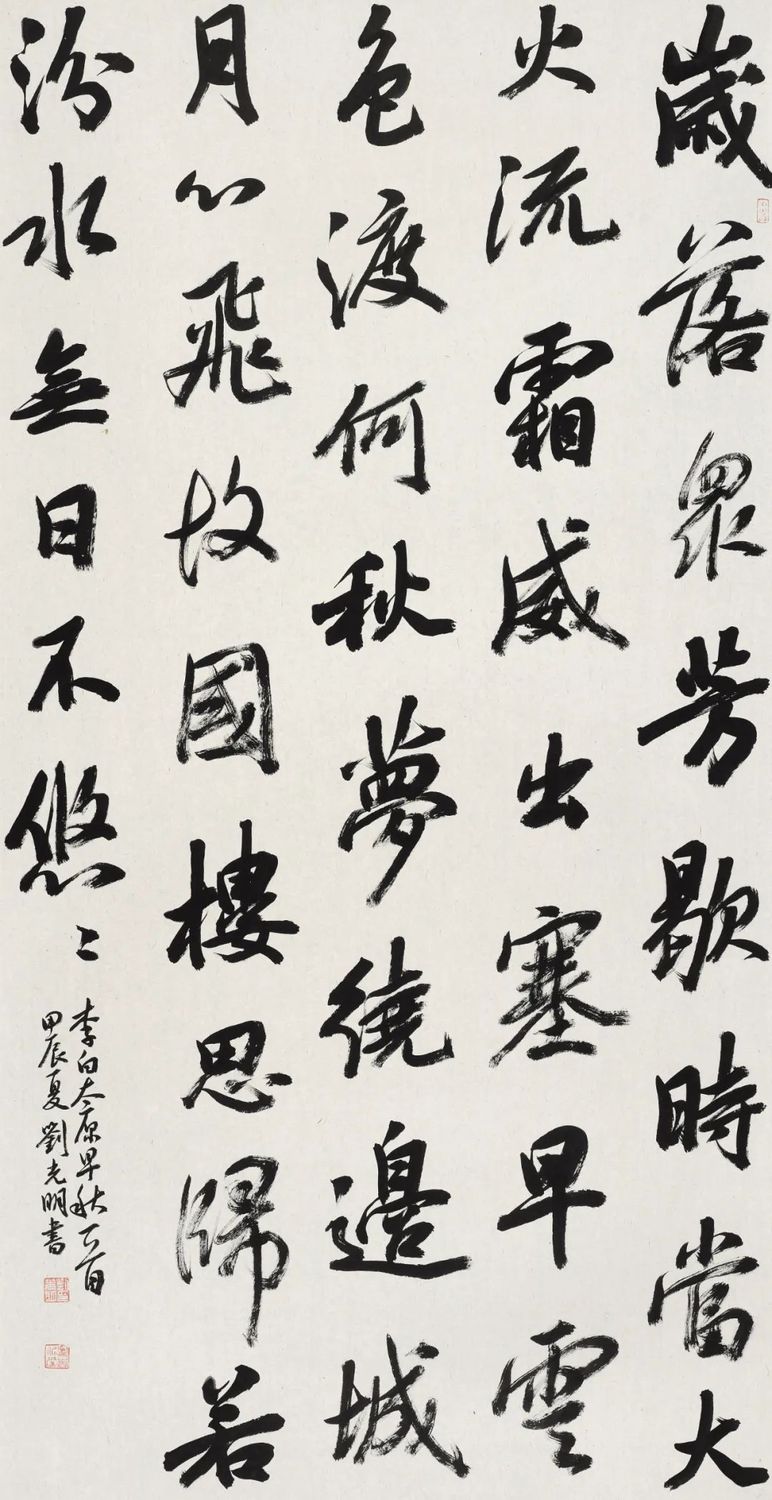 歲落眾芳歇時當大
火流霜威出塞早雲
色渡何秋夢繞邊城
月心飛故國樓思歸若
汾水無日不悠〻
李白太原早秋一首
甲辰夏劉光明書